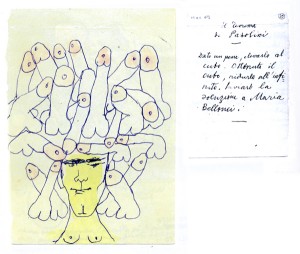 il Dramma
di Pasolini
Dato un pene, elevarlo al
cubo. Ottenuto il
cubo, ridurlo all'infi
nito. Inviare la
soluzione a Maria
Bellonci.